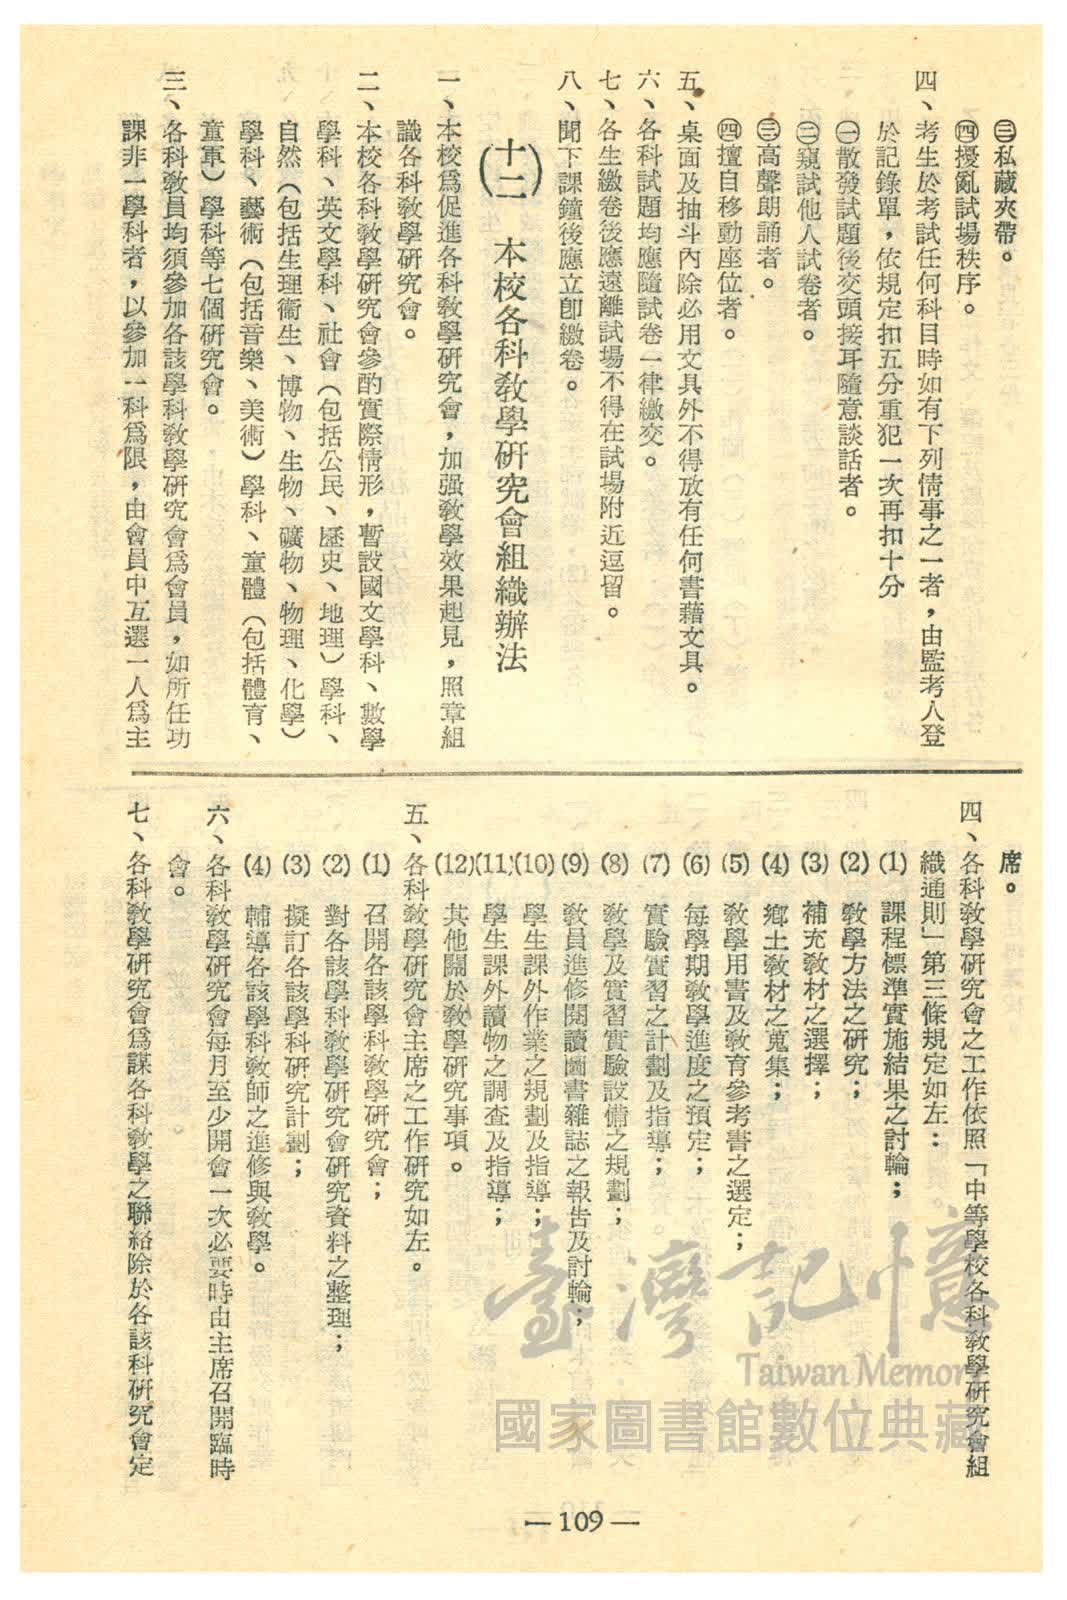 ㊂私藏夾帶。
㊃擾亂試場秩序。
四、考生於考試任何科目時如有下列情事之一者，由監考人登
於記錄單，依規定扣五分重犯一次再扣十分
㊀散發試題後交頭接耳隨意談話者。
㊁窺試他人試卷者。
㊂高聲朗誦者。
㊃擅自移動座位者。
五、桌面及抽斗內除必用文具外不得放有任何書藉文具。
六、各科試題均應隨試卷一律繳交。
七、各生繳卷後應遠離試場不得在試場附近逗留。
八、聞下課鐘後應立卽繳卷。
(十二) 本校各科敎學研究會組織辦法
一、本校爲促進各科敎學研究會，加强敎學效果起見，照章組
識各科敎學研究會。
二、本校各科敎學研究會參酌實際情形，暫設國文學科、數學
學科、英文學科、社會（包括公民、歷史、地理）學科、
自然（包括生理衞生、博物、生物、礦物、物理、化學）
學科、藝術（包括音樂、美術）學科、童體（包括體育、
童軍）學科等七個硏究會。
三、各科敎員均須參加各該學科敎學研究會爲會員，如所任功
課非一學科者，以參加一科爲限，由會員中互選一人爲主
席。
四、各科敎學研究會之工作依照「中等學校各科敎學研究會組
織通則」第三條規定如左：
(1) 課程標準實施結果之討輪；
(2) 敎學方法之研究；
(3) 補充敎材之選擇；
(4) 鄕土敎材之蒐集；
(5) 敎學用書及敎育參考書之選定；
(6) 每學期敎學進度之預定；
(7) 實驗實習之計劃及指導；
(8) 敎學及實習實驗設備之規劃；
(9) 敎員進修閱讀圖書雜誌之報告及討輪；
(10) 學生課外作業之規劃及指導；
(11) 學生課外讀物之調査及指導；
(12) 其他關於敎學研究事項。
五、各科敎學研究會主席之工作研究如左。
(1) 召開各該學科敎學研究會；
(2) 對各該學科敎學研究會研究資料之整理；
(3) 擬訂各該學科研究計劃；
(4) 輔導各該學科敎師之進修與敎學。
六、各科敎學研究會每月至少開會一次必要時由主席召開臨時
會。
七、各科敎學研究會爲謀各科敎學之聯絡除於各該科研究會定
— 109 —
臺灣記憶
Taiwan Memory
國家圖書館數位典藏